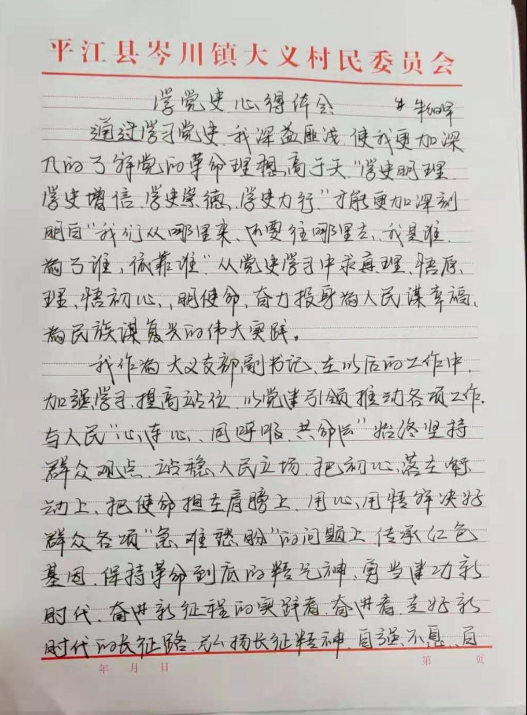 平江县岑川镇大义村民委员会
学党史心得体会
通过学习党史,我深益匪浅,使我更加深
入的了解党的革命理想高于天,"学史明理、
学史增信、学史崇德、学史力行"才能更加深刻
明白"我们从哪里来、要往哪里去、我是谁、
为了谁,依靠谁",从党史学习中求真理、悟原
理、悟初心、明使命,奋力投身为人民谋幸福、
为民族谋复兴的伟大实践。
我作为大义支部副书记,在以后的工作中,
加强学习,提高站位,以党建引领推动各项工作,
与人民"心连心、同呼吸、共命运"始终坚持
群众观点,站稳人民立场,把初心落在行
动上,把使命担在肩膀上,用心用情解决好
群众各项"急难愁盼"的问题上,传承红色
基因,保持革命到底的精气神,勇当建功新
时代、奋进新征程的实践者、奋进者,走好新
时代的长征路,弘扬长征精神,自强不息、自
年 月 日
第 页